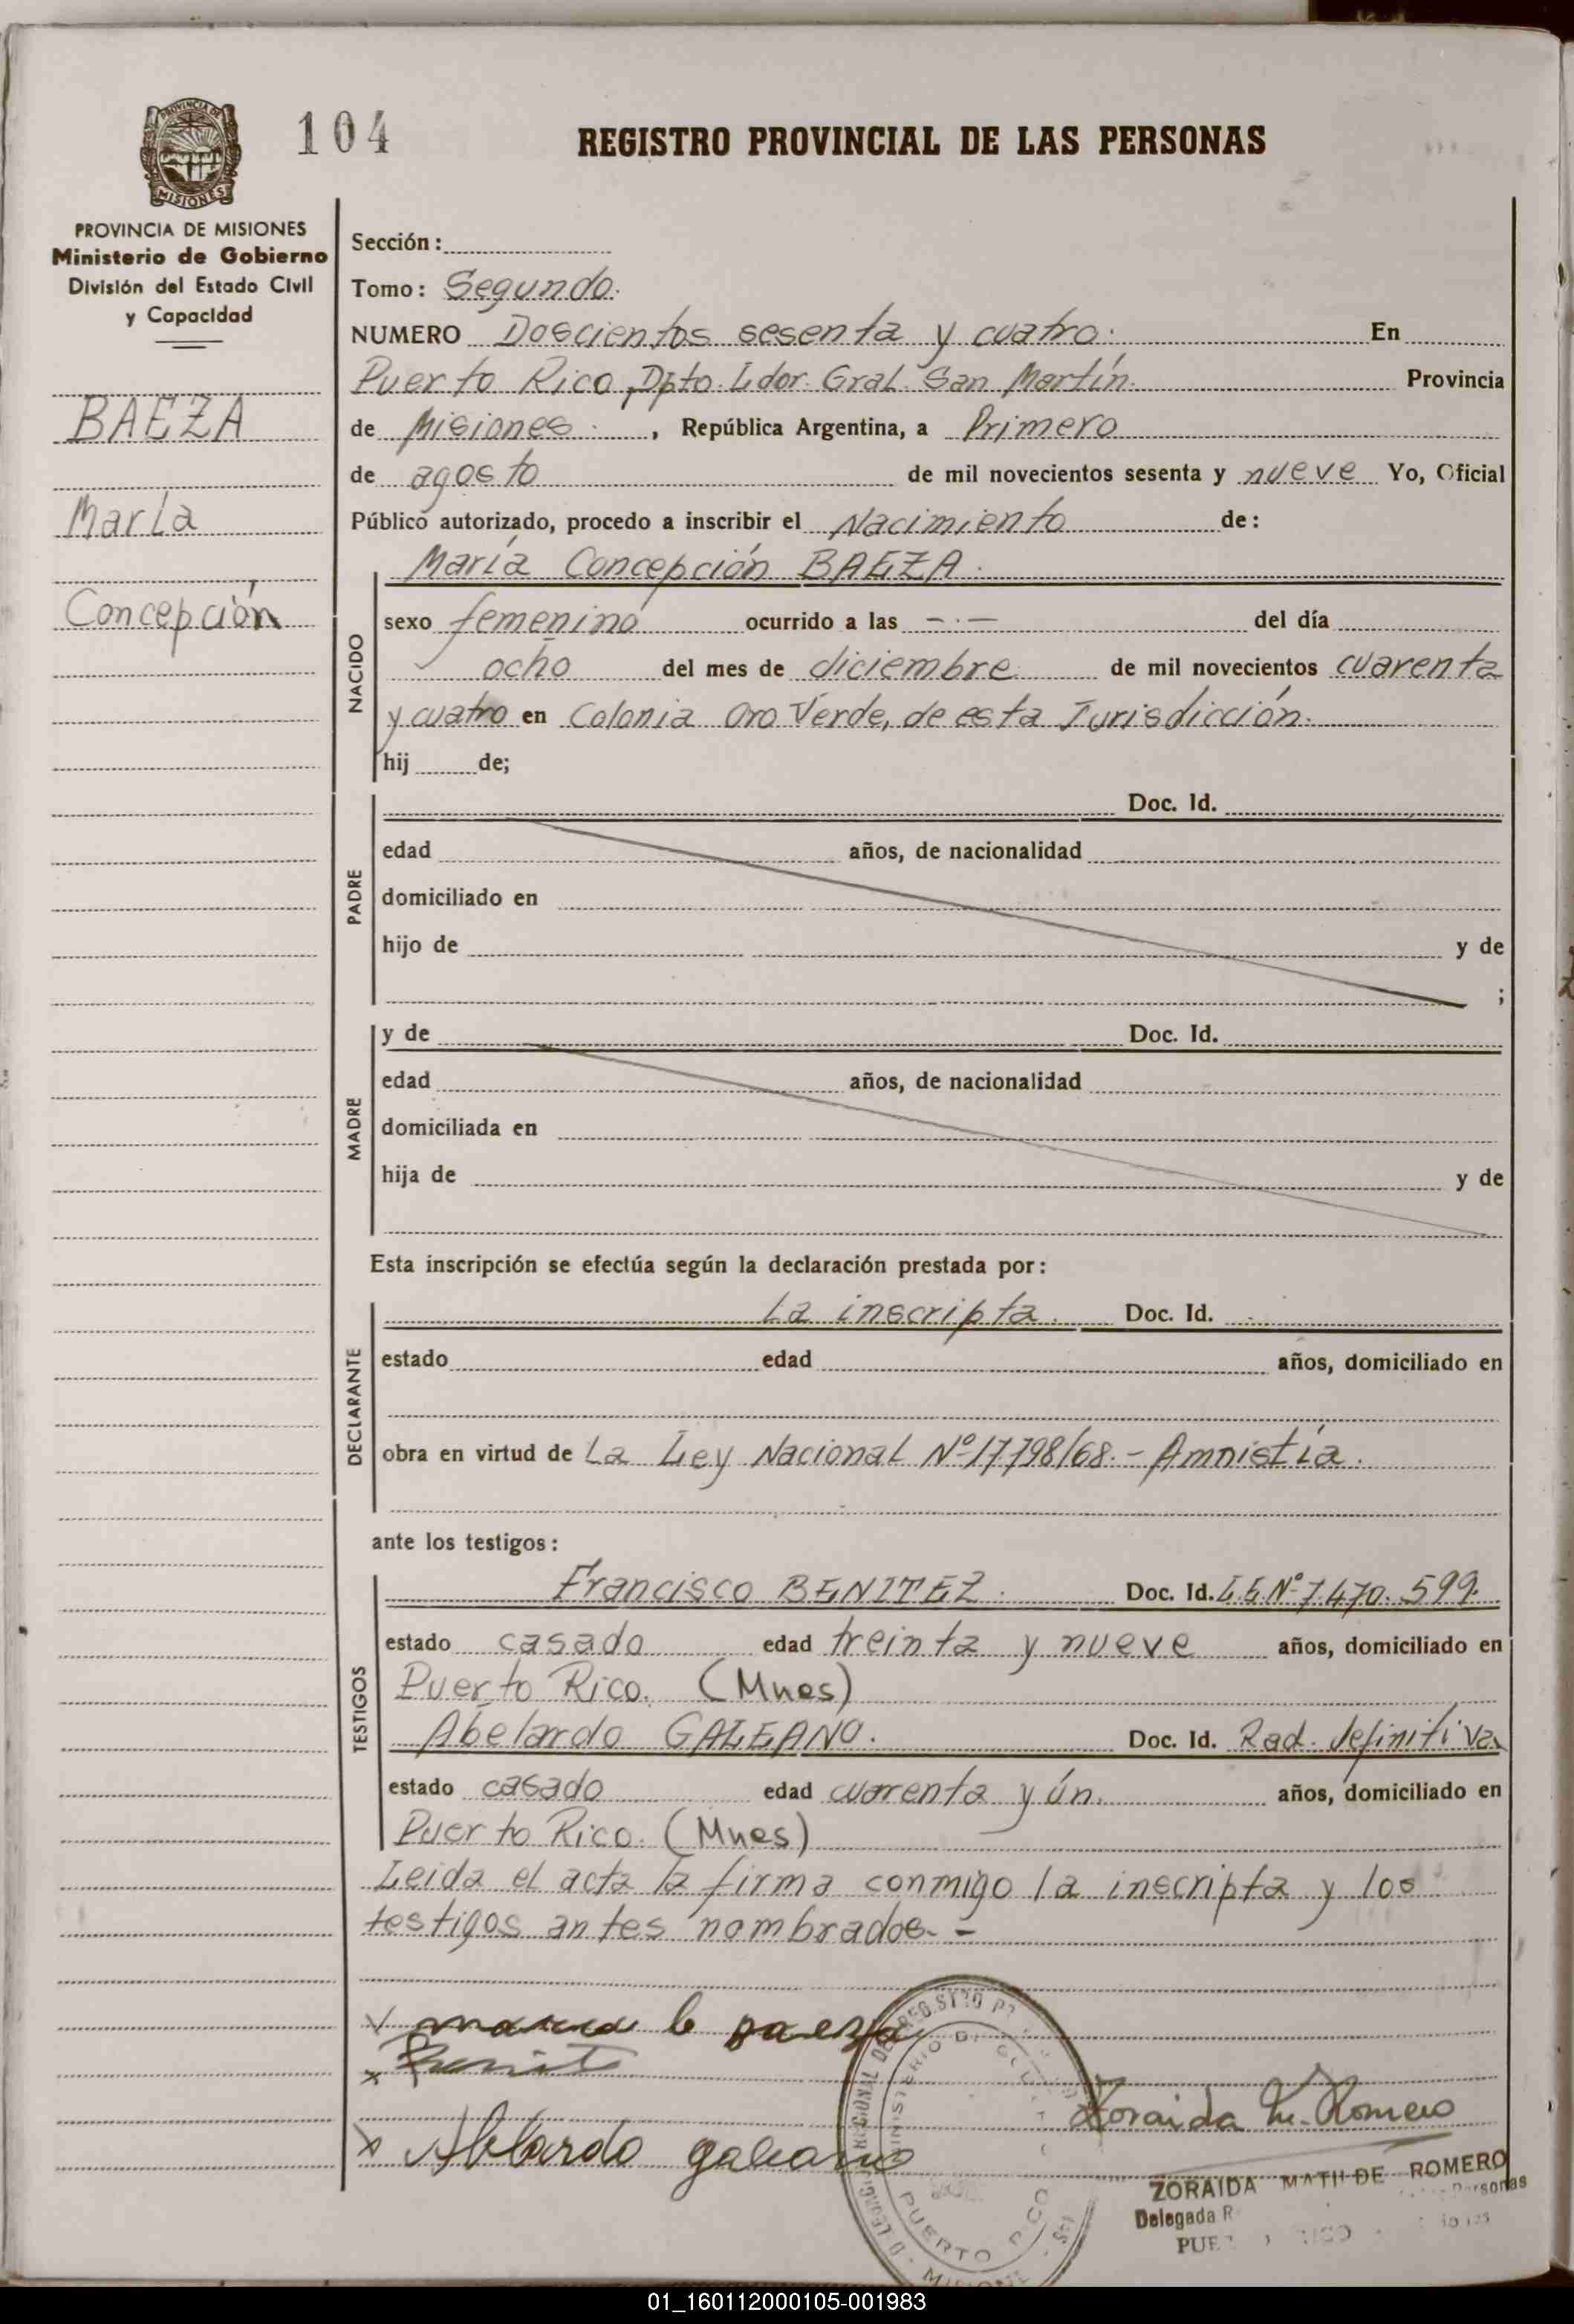 104
REGISTRO PROVINCIAL DE LAS PERSONAS
PROVINCIA DE MISIONES
PROVINCIA DE MISIONES
Ministerio de Gobierno
División del Estado Civil
y Capacidad
BAEZA
María
Concepción
Sección:
Tomo: Segundo.
NUMERO Doscientos sesenta y cuatro. En
Puerto Rico, Dpto. Ldor. Gral. San Martín. Provincia
de Misiones. , República Argentina, a Primero
de agosto de mil novecientos sesenta y nueve Yo, Oficial
Público autorizado, procedo a inscribir el Nacimiento de:
María Concepción BAEZA.
NACIDO
sexo femenino ocurrido a las -.- del día
ocho del mes de diciembre de mil novecientos cuarenta
y cuatro en Colonia Oro Verde, de esta Jurisdicción.
hij de;
PADRE
Doc. Id.
edad años, de nacionalidad
domiciliado en
hijo de y de
;
MADRE
y de Doc. Id.
edad años, de nacionalidad
domiciliada en
hija de y de
Esta inscripción se efectúa según la declaración prestada por:
DECLARANTE
La inscripta. Doc. Id.
estado edad años, domiciliado en
obra en virtud de La Ley Nacional Nº 17.798/68.- Amnistía.
ante los testigos:
TESTIGOS
Francisco BENITEZ. Doc. Id. L.E.Nº 7.470.599.
estado casado edad treinta y nueve años, domiciliado en
Puerto Rico. (Mnes)
Abelardo GALEANO. Doc. Id. Rad. definitiva
estado casado edad cuarenta y ún. años, domiciliado en
Puerto Rico. (Mnes)
Leida el acta la firma conmigo la inscripta y los
testigos antes nombrados.=
x maria c baeza
x
x Abelardo galeano
Zoraida M. Romero
ZORAIDA MATILDE ROMERO
Delegada
PUERTO RICO
01_160112000105-001983